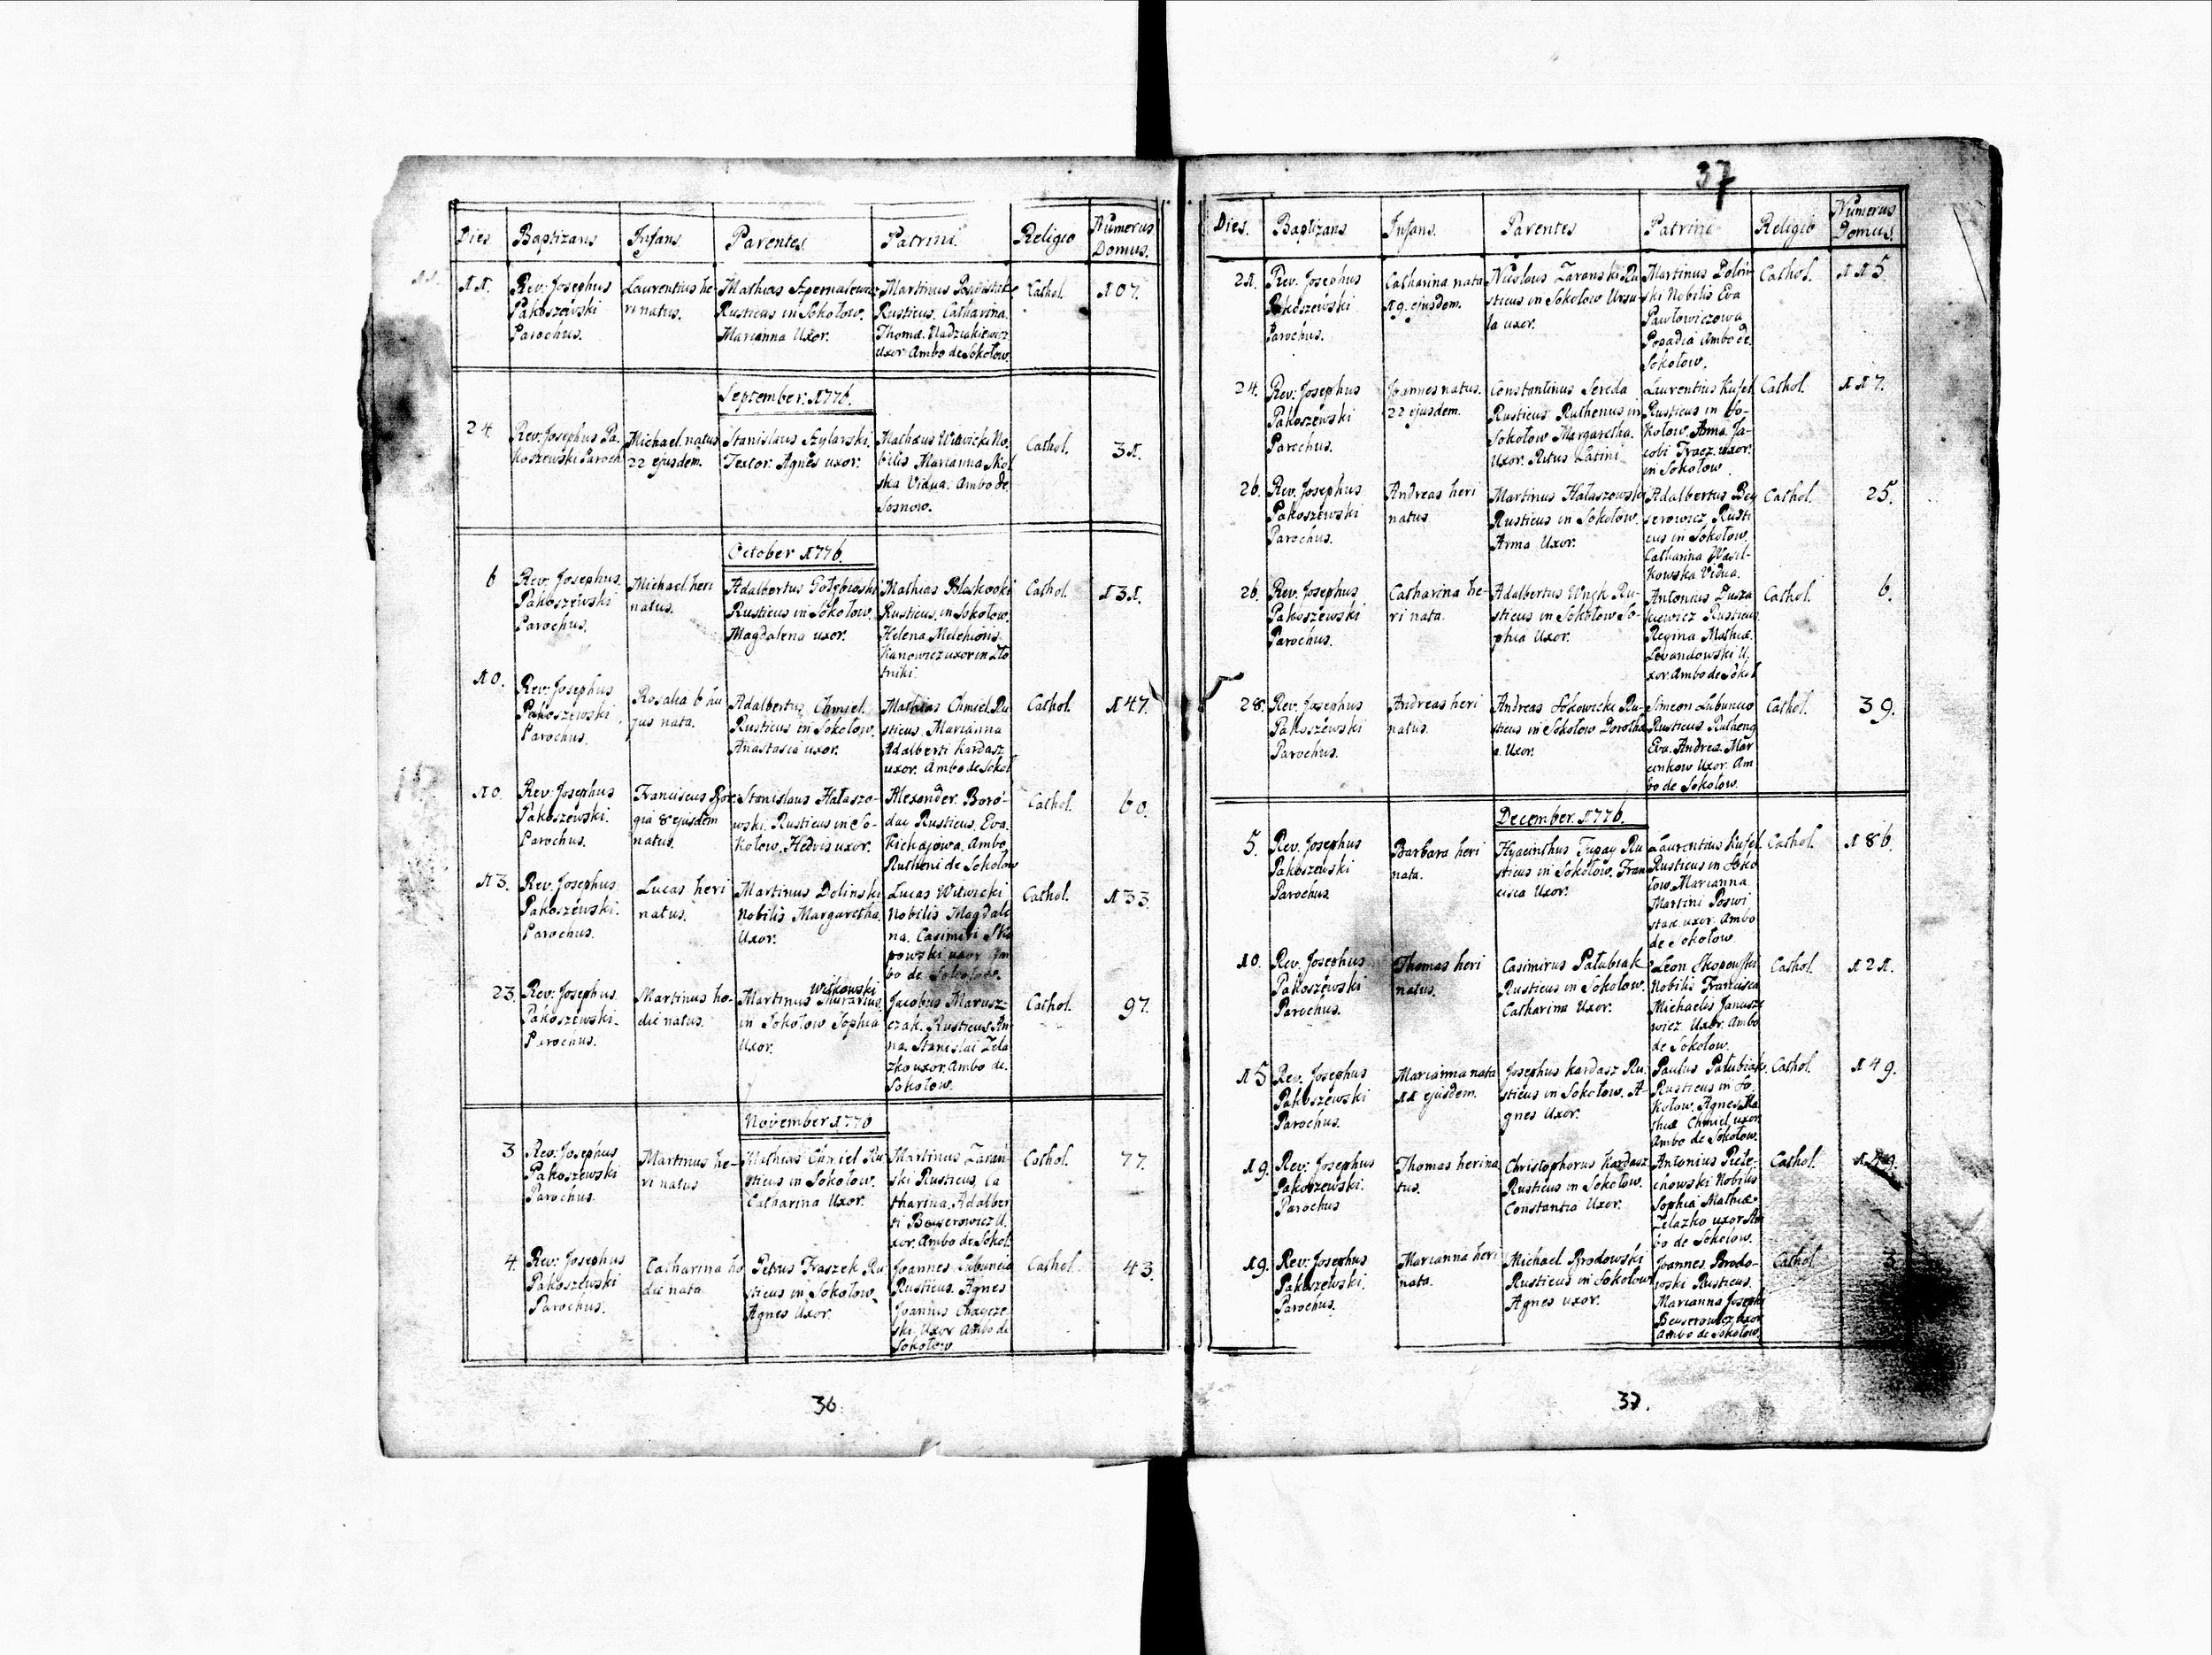 37
Dies. Baptizans Infans. Parentes. Patrini. Religio Numerus Domus.
11. Rev: Josephus Pakoszewski Parochus.
Laurentius heri natus.
Mathias Szpernalewicz Rusticus in Sokołow. Marianna Uxor.
Martinus Rusticus. Catharina. Thomæ uxor Ambo de Sokołow
Cathol. 107.
September. 1776.
24. Rev: Josephus Pakoszewski Paroch.
Michael. natus 22 ejusdem.
Stanislaus Szylarski. Textor. Agnes uxor.
Mathæus Witwicki Nobilis Marianna Skolska Vidua. Ambo de Sosnow.
Cathol. 31.
October 1776.
6 Rev: Josephus. Pakoszewski Parochus.
Michael heri natus.
Adalbertus Gołębioski Rusticus in Sokołow. Magdalena uxor.
Mathias Rusticus. in Sokołow. Helena Melchioris. Kanowicz uxor in Złotniki.
Cathol. 131.
10. Rev: Josephus Pakoszewski Parochus.
Rosalia 6 hujus nata.
Adalbertus Chmiel Rusticus in Sokołow. Anastasia uxor.
Mathias Chmiel Rusticus. Marianna Adalberti Kardasz uxor. Ambo de Sokoł
Cathol. 147.
10. Rev: Josephus Pakoszewski. Parochus.
Franciscus Borgia 8 ejusdem natus.
Stanislaus Hałaszowski. Rusticus in Sokołow. Hedvis uxor.
Alexander. Borodai Rusticus. Eva. Kichajowa. Ambo Rutheni de Sokołow
Cathol. 60.
13. Rev: Josephus. Pakoszewski. Parochus.
Lucas heri natus.
Martinus Dolinski Nobilis Margaretha. Uxor.
Lucas Witwicki Nobilis Magdalena. Casimiri uxor Ambo de Sokołow.
Cathol. 133.
23. Rev: Josephus. Pakoszewski. Parochus.
Martinus hodie natus.
Wiśkowski
Martinus Murarius in Sokołow Sophia Uxor.
Jacobus Maruszczak. Rusticus Anna. Stanislai Zelazko uxor. Ambo de. Sokołow.
Cathol. 97.
November 1776
3 Rev: Josephus Pakoszewski Parochus.
Martinus heri natus
Mathias Chmiel Rusticus in Sokołow. Catharina Uxor.
Martinus Zaranski Rusticus. Catharina. Adalberti Beyserowicz Uxor. Ambo de Sokoł.
Cathol. 77.
4. Rev: Josephus Pakoszewski Parochus.
Catharina hodie nata
Petrus Fraszek Rusticus in Sokołow. Agnes Uxor.
Joannes Rusticus. Agnes Joannis Uxor Ambo de Sokołow
Cathol. 43.
36.
Dies. Baptizans. Infans. Parentes Patrini Religio Numerus Domus.
21. Rev. Josephus Pakoszewski Parochus.
Catharina nata 19. ejusdem.
Nicolaus Zaranski Rusticus in Sokołow Ursula uxor.
Martinus Dolinski Nobilis Eva Pawłowiczowa Ambo de. Sokołow.
Cathol. 115
24. Rev: Josephus Pakoszewski Parochus.
Joannes natus. 22 ejusdem.
Constantinus Sereda Rusticus Ruthenus in Sokołow Margaretha. Uxor. Ritus Latini
Laurentius Kusel Rusticus in Sokołow. Anna. Jacobi Tracz uxor. in Sokołow.
Cathol. 117.
26. Rev. Josephus Pakoszewski Parochus.
Andreas heri natus
Martinus Hałaszowski Rusticus in Sokołow. Anna Uxor.
Adalbertus Beyserowicz Rusticus in Sokołow. Catharina Wasilkowska Vidua.
Cathol. 25.
26. Rev. Josephus Pakoszewski Parochus.
Catharina heri nata.
Adalbertus Wnęk Rusticus in Sokołow Sophia Uxor.
Antonius Rusticus Regina Mathiæ. Levandowski Uxor. Ambo de Sokoł
Cathol. 6.
28. Rev. Josephus Pakoszewski Parochus.
Andreas heri natus.
Andreas Rusticus in Sokołow Dorothea. Uxor.
Simeon Rusticus. Ruthenq Eva. Andreæ Marcinkow Uxor. Ambo de Sokołow.
Cathol. 39.
December. 1776.
5. Rev. Josephus Pakoszewski Parochus.
Barbara heri nata.
Hyacinthus Tupay Rusticus in Sokołow. Francisca Uxor.
Laurentius Kusel Rusticus in Sokołow. Marianna Martini uxor. Ambo de Sokołow.
Cathol. 186.
10. Rev. Josephus Pakoszewski Parochus.
Thomas heri natus.
Casimirus Pałubiak Rusticus in Sokołow. Catharina Uxor.
Leon Skopowski Nobilis Francisca Michaelis Januszewicz. Uxor. Ambo de Sokołow.
Cathol. 121.
15 Rev. Josephus Pakoszewski Parochus.
Marianna nata 11 ejusdem.
Josephus Kardasz Rusticus in Sokołow. Agnes Uxor.
Paulus Pałubiak. Rusticus in Sokołow. Agnes Mathiæ Chmiel uxor Ambo de Sokołow.
Cathol. 149.
19. Rev: Josephus Pakoszewski. Parochus
Thomas heri natus.
Christophorus Kardasz Rusticus in Sokołow. Constantia Uxor.
Antonius Nobilis Sophia Mathiæ Zelazko uxor Ambo de Sokołow.
Cathol.
19. Rev: Josephus Pakoszewski. Parochus.
Marianna heri nata.
Michael Brodowski Rusticus in Sokołow Agnes uxor.
Joannes. Brodowski Rusticus. Marianna Josephi Beyserowicz Uxor Ambo de Sokołow.
Cathol 3
37.